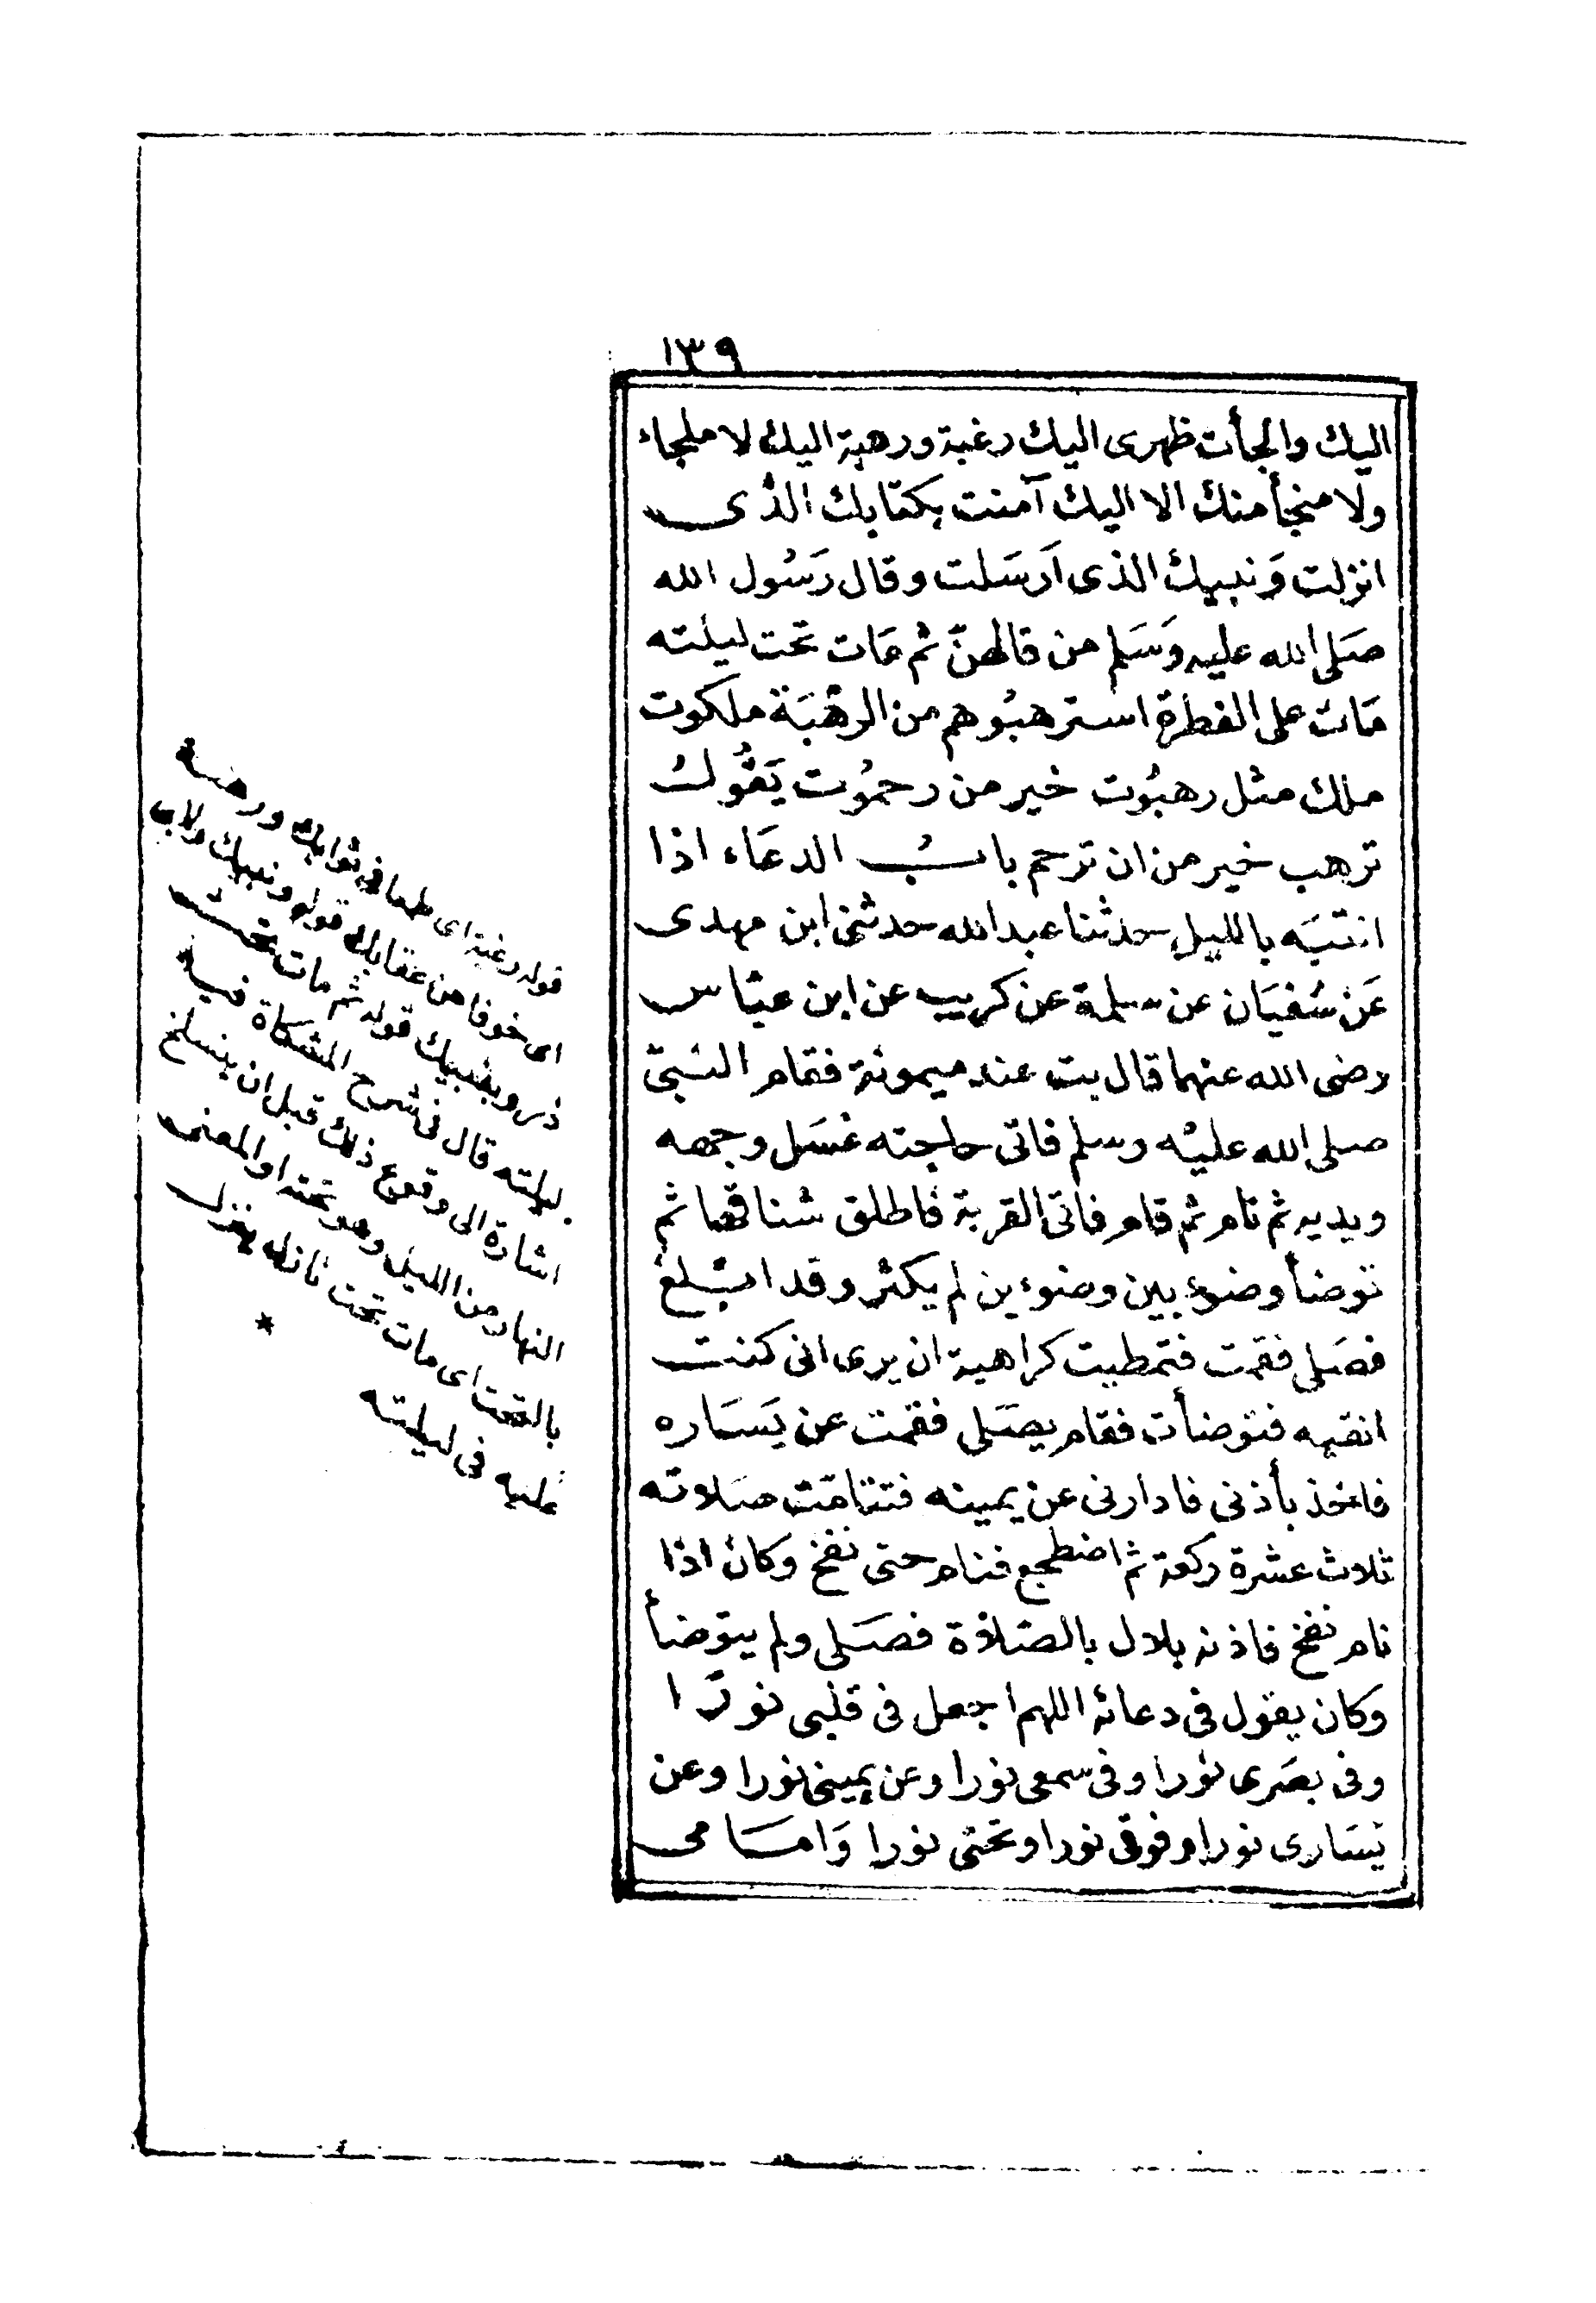 ١٣٩
اليك والجأت ظهرى اليك رغبة ورهبة اليك لا ملجاء
ولا منجأ منك الا اليك آمنت بكتابك الذى
انزلت وَنبيك الذى اَرسَلت وقال رَسُول الله
صَلى الله عليه وَسَلم من قالهنّ ثم مَات تحت ليلته
مَات على الفطرة استرهبُوهم من الرهبَة ملكوت
ملك مثل رهبُوت خير من رحمُوت يَقُولُ
ترهب خير من ان ترحم بابُ الدعَاء اذا
انتبَه بالليل حدثنا عبد الله حدثنى ابن مهدى
عَن سُفيَان عن سلمة عن كريب عن ابن عبّاس
رضى الله عنهما قال بت عند ميمونة فقام النبىّ
صلى الله عليْه وسلم فاتى حاجته غسَل وجهه
ويديه ثم نام ثم قام فاتى القربة فاطلق شناقها ثم
توضأ وضوء بين وضوءين لم يكثر وقد ابْلغ
فصَلى فقمت فتمطيت كراهية ان يرى انى كنت
اتقيه فتوضأت فقام يصَلى فقمت عن يَسَاره
فاخذ بأذنى فادارنى عن يمينه فتتامّت صَلاته
ثلاث عشرة ركعة ثم اضطجع فنام حتى نفخ وكان اذا
نام نفخ فاذنه بلال بالصّلاة فصَلى ولم يتوضأ
وكان يقول فى دعائه اللهم اجعل فى قلبى نورًا
وفى بصَرى نورا وفى سمعى نورا وعن يمينى نورا وعن
يسَارى نورا وفوقى نورا وتحتى نورا وَامامى
قوله رغبة اى طمعا فى ثوابك ورهبة
اى خوفا من عقابك قوله ونبيك ولابى
ذر وبنبيك قوله ثم مات تحت
ليلته قال فى شرح المشكاة فيه
اشارة الى وقوع ذلك قبل ان ينسلخ
النهار من الليل وهو تحته او المعنى
بالتحت اى مات تحت نازلة ينزل
عليه فى ليلته